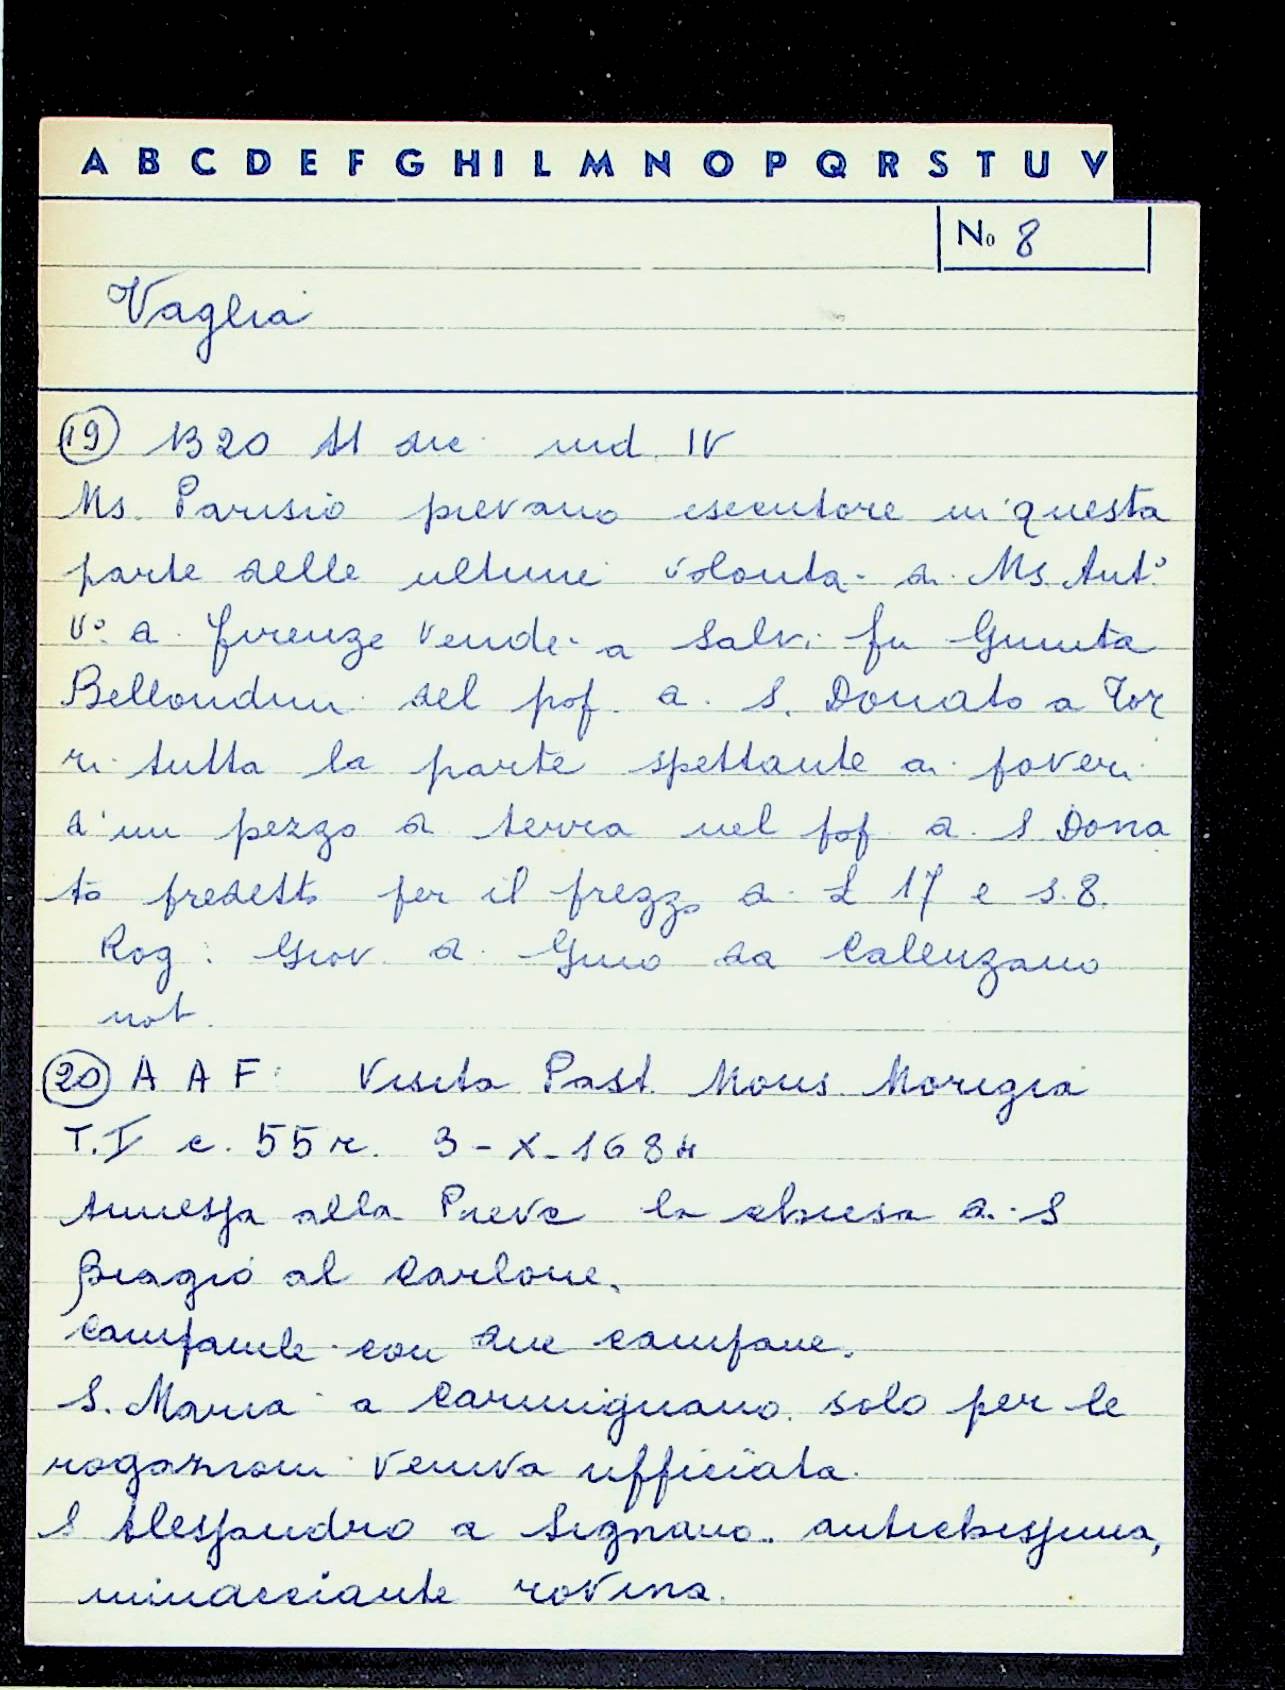 A B C D E F G H I L M N O P Q R S T U V
No 8
Vaglia
19 1320 11 dic. ind. IV
Ms. Parisio pievano esecutore in questa
parte delle ultime volontà di Ms. Ant°
V° di Firenze vende a Salvi fu Giunta
Bellondini del pop. di S. Donato a Tor
ri tutta la parte spettante ai poveri
d'un pezzo di terra nel pop. di S Dona
to predetto per il prezzo di £ 17 e s. 8.
Rog: Giov. di Gino da Calenzano
not.
20 A A F: Visita Past. Mons. Morigia
T. I c. 55 r. 3 - X - 1684
Annessa alla Pieve la chiesa di S
Biagio al Carlone.
Campanile con due campane.
S. Maria a Carmignano. solo per le
rogazioni veniva ufficiata.
S Alessandro a Signano. antichissima,
minacciante rovina.